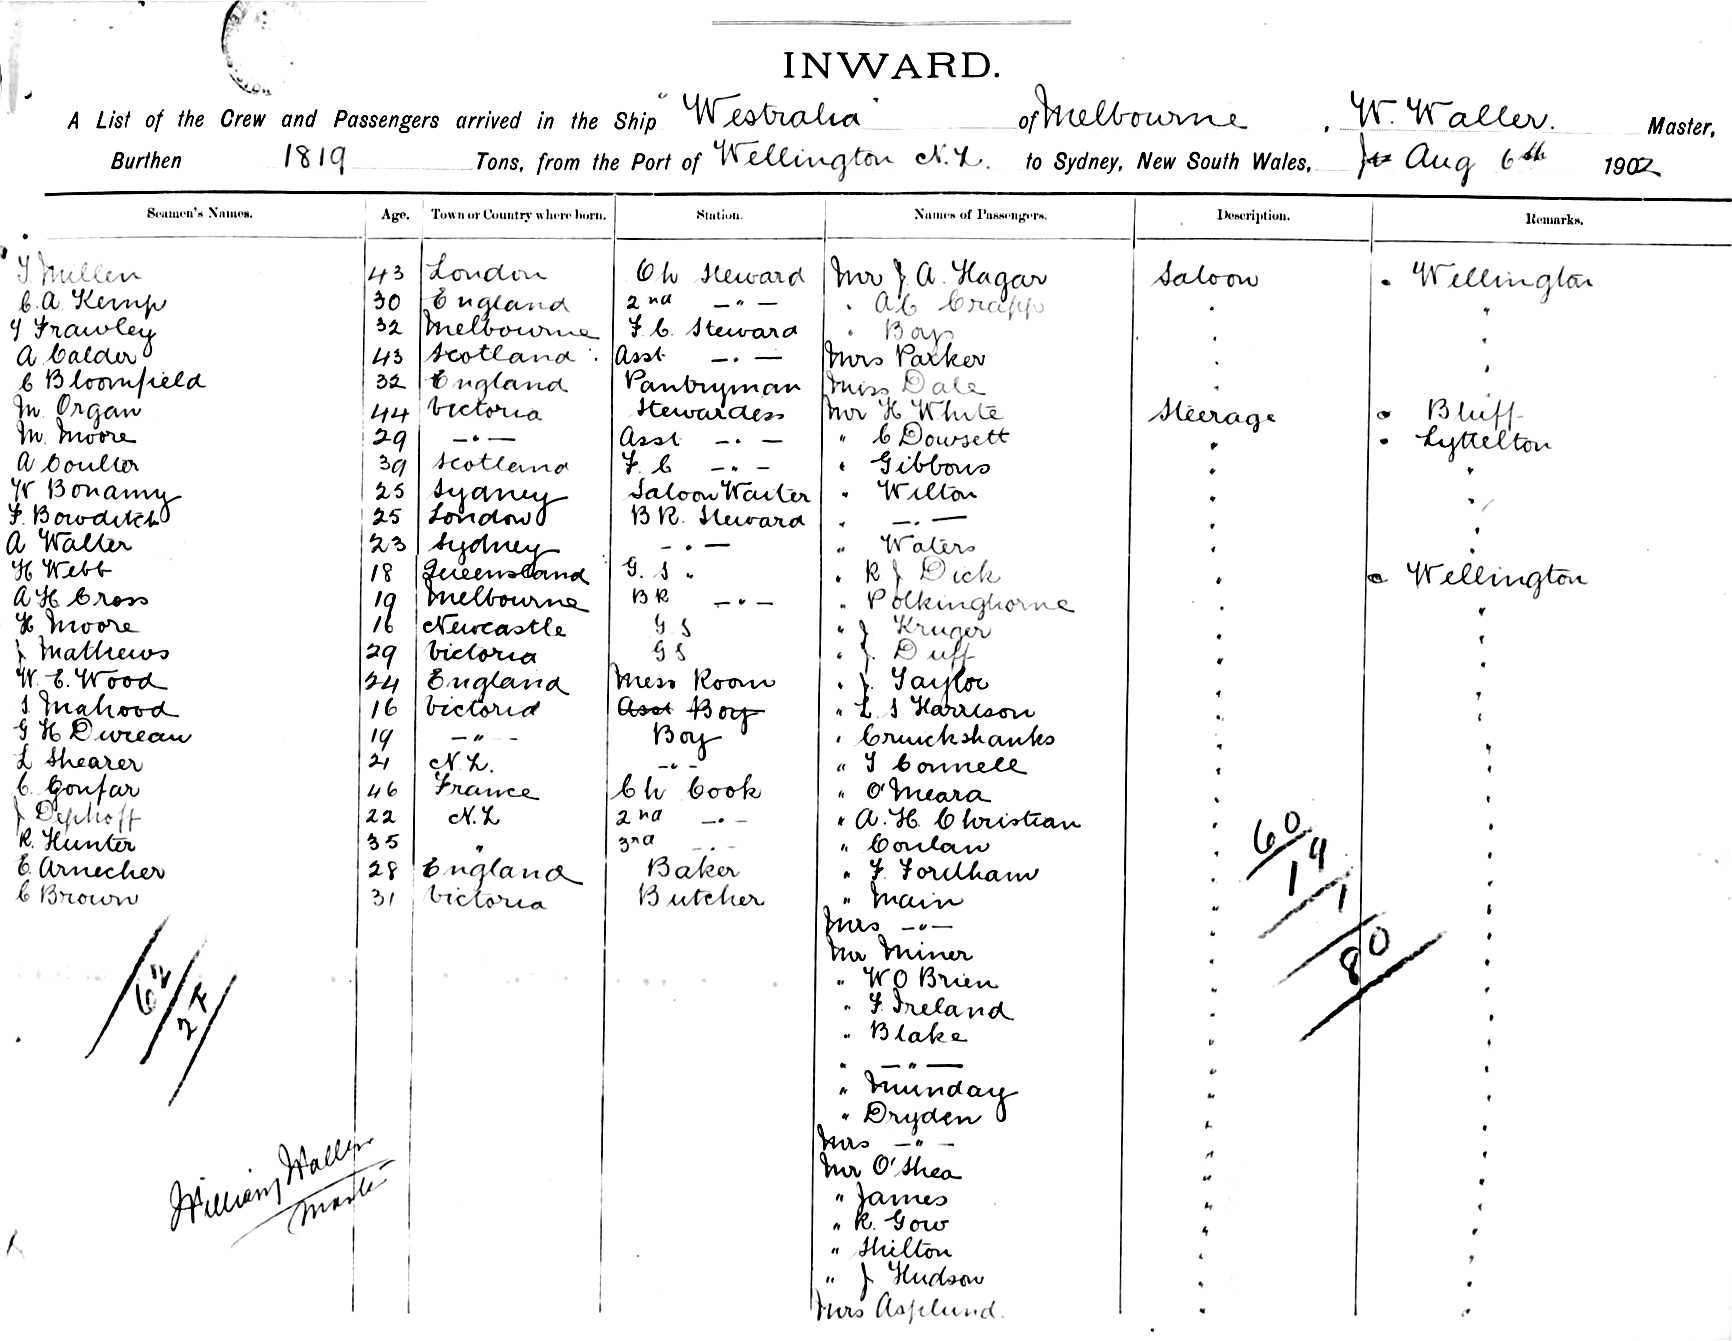 INWARD.
A List of the Crew and Passengers arrived in the Ship "Westralia" of Melbourne, W. Waller. Master,
Burthen 1819 Tons, from the Port of Wellington N.Z. to Sydney, New South Wales, Aug 6th 1902
Seamen's Names. Age. Town or Country where born. Station. Names of Passengers. Description. Remarks.
T Millen 43 London Ch Steward Mr J. A. Hagar Saloon • Wellington
C. A Kemp 30 England 2nd — " — " A C Crapp " "
T Frawley 32 Melbourne F. C. Steward " Boys " "
A Calder 43 Scotland Asst — " — Mrs Parker " "
C Bloomfield 32 England Pantryman Miss Dale " "
M. Organ 44 Victoria Stewardess Mr H White Steerage • Bluff
M. Moore 29 — " — Asst — " — " C Dowsett " • Lyttelton
A Coulter 39 Scotland F. C — " — " Gibbons " "
W Bonamy 25 Sydney Saloon Waiter " Wilton " "
F. Bowditch 25 London B R. Steward " — " — " "
A Walter 23 Sydney — " — " Waters " "
H Webb 18 Queensland G. S " " R J Dick " • Wellington
A H Cross 19 Melbourne B R — " — " Polkinghorne " "
H Moore 16 Newcastle G S " J Kruger " "
J Mathews 29 Victoria G S " J. Duff " "
W. E. Wood 24 England Mess Room " J. Taylor " "
S Mahood 16 Victoria Asst Boy " L S Harrison " "
G H Dureau 19 — " — Boy " Cruickshanks " "
L Shearer 21 N. Z. — " — " T Connell " "
C. Gonfar 46 France Ch Cook " O'Meara " "
J Dephoff 22 N. Z 2nd — " — " A. H. Christian " "
R. Hunter 35 " 3rd — " — " Conlan " "
E. Arnecher 28 England Baker " F. Fordham " "
C Brown 31 Victoria Butcher " Main " "
Mrs — " — " "
Mr Miner " "
" W O Brien " "
" F. Ireland " "
" Blake " "
" — " — " "
" Munday " "
" Dryden " "
Mrs — " — " "
Mr O'Shea " "
" James " "
" R. Gow " "
" Shilton " "
" J Hudson " "
Mrs Asplund. " "
60/19/1/80
62/24
William Waller
Master